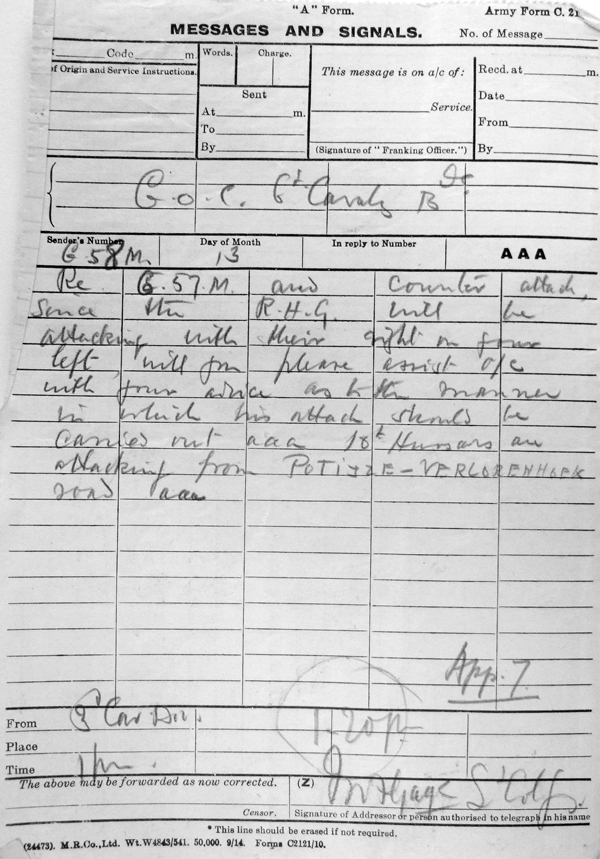 "A" Form. Army Form C. 21
MESSAGES AND SIGNALS. No. of Message
Code m. Words. Charge. This message is on a/c of: Recd. at m.
of Origin and Service Instructions. Sent Date
At m. Service. From
To
By (Signature of "Franking Officer.") By
G.O.C. 6th Cavalry Bde
Sender's Number Day of Month In reply to Number AAA
G.58M. 13
Re G.57.M. and counter attach,
Since the R.H.G. will be
attacking with their right on your
left, will you please assist O/C
with your advice as to the manner
in which his attack should be
carried out aaa 10th Hussars are
attacking from POTIJZE-VERLORENHOEK
road aaa
App. 7.
From 3rd Cav Div. 1-20pm
Place
Time 1pm.
The above may be forwarded as now corrected. (Z) Gage Lt Col
Censor. Signature of Addressor or person authorised to telegraph in his name
* This line should be erased if not required.
(24473). M.R.Co., Ltd. Wt.W4843/541. 50,000. 9/14. Forms C2121/10.